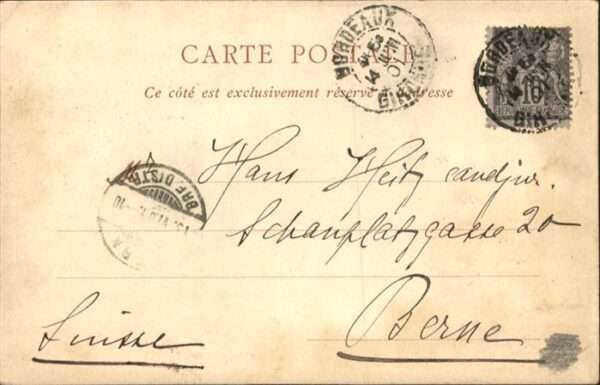 CARTE POSTALE
Ce côté est exclusivement réservé à l'adresse
BORDEAUX
GIRONDE
BORDEAUX
GIR
10
BRF.DISTR.
Hans Heitz cand jur.
Schauplatzgasse 20
Berne
Suisse